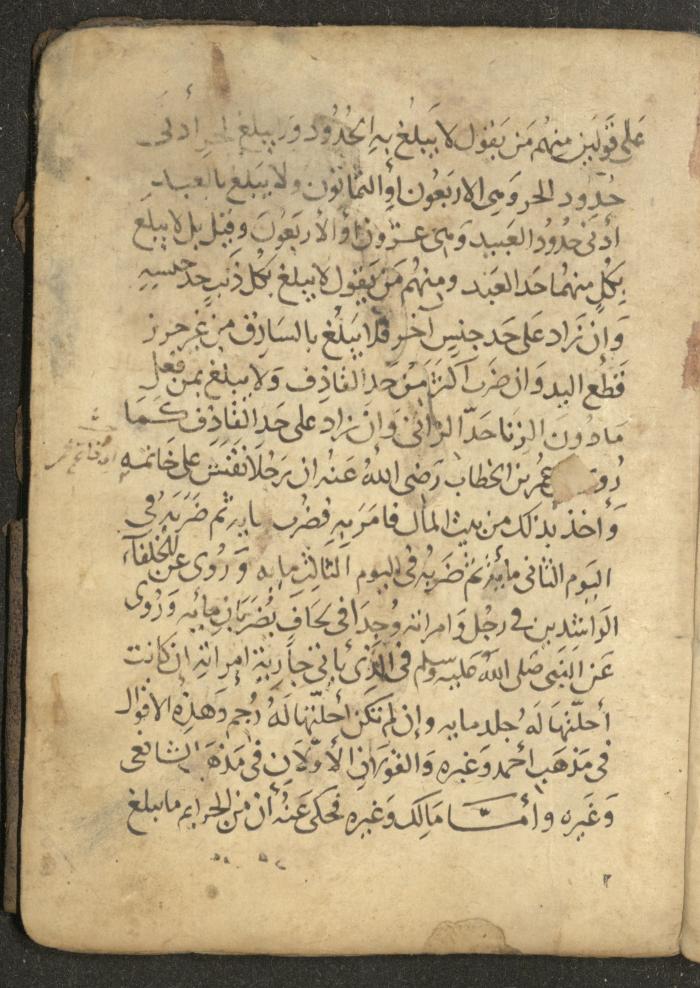 على قولين منهم من يقول لا يبلغ به الحدود ولا يبلغ الحر أدنى
حدود الحر وهي الاربعون أو الثمانون ولا يبلغ بالعبد
أدنى حدود العبيد وهي عشرون أو الأربعون وقيل بل لا يبلغ
بكل منهما حد العبد ومنهم من يقول لا يبلغ بكل ذنب حد جنسه
وإن زاد على حد جنس آخر فلا يبلغ بالسارق من غير حرز
قطع اليد وان ضرب أكثر من حد القاذف ولا يبلغ بمن فعل
ما دون الزنا حد الزاني وان زاد على حد القاذف كما
عمر بن الخطاب رضي الله عنه ان رجلا نقش على خاتمه
وأخذ بذلك من بيت المال فامر به فضرب مايه ثم ضربه في
اليوم الثاني مأيه ثم ضربه في اليوم الثالث مايه وروى عن الخلفاء
الراشدين في رجل وامراته وجدا في لحاف يضربان مأيه وروى
عن النبي صلى الله عليه وسلم في الذي يأتي جارية امراته ان كانت
أحلتها له جلد مايه وإن لم تكن أحلتها له رجم وهذه الأقوال
في مذهب أحمد وغيره والقولان الأولان في مذهب الشافعي
وغيره وأما مالك وغيره فحكى عنه أن من الجرايم ما يبلغ